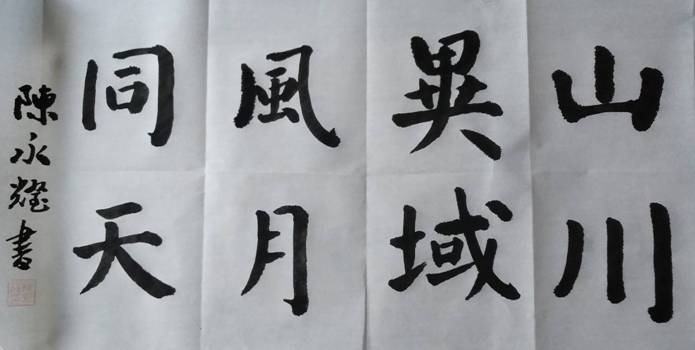 山川
異域
風月
同天
陳永耀書